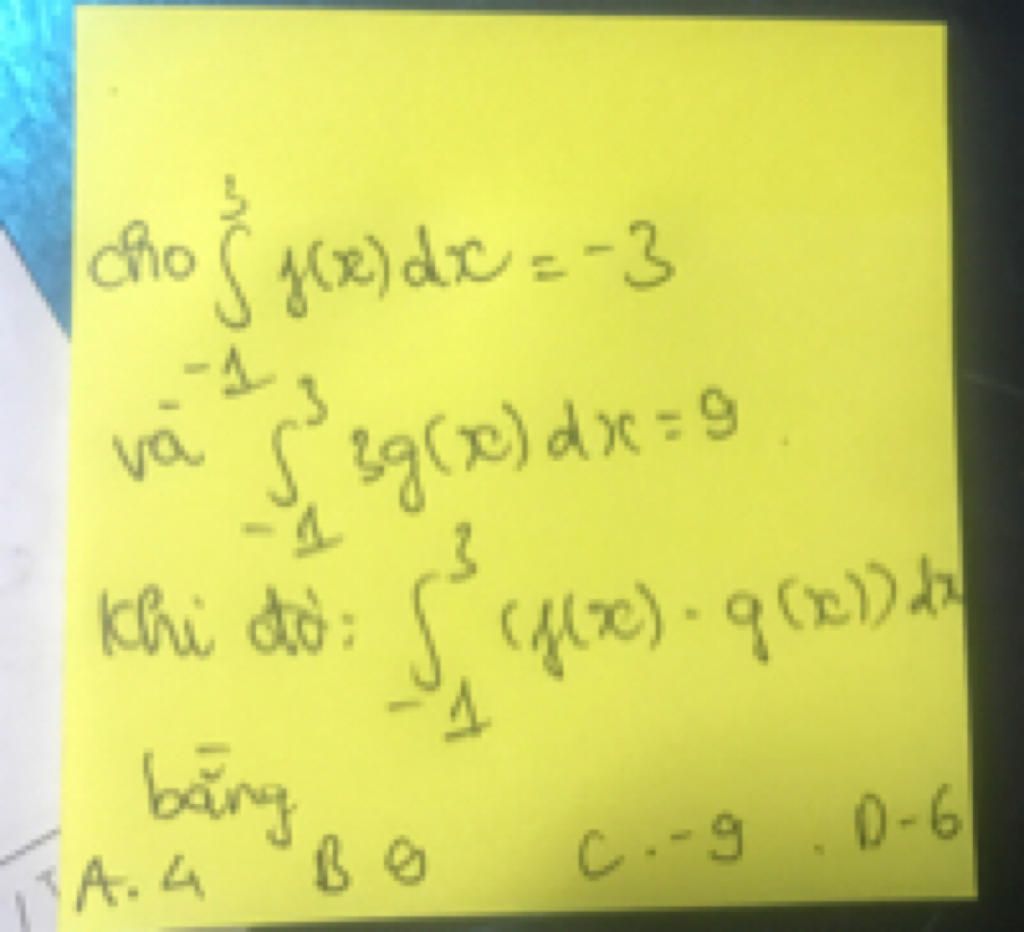 cho ∫₋₁³ f(x) dx = -3
và ∫₋₁³ 3g(x) dx = 9.
Khi đó: ∫₋₁³ (f(x) - g(x)) dx
bằng
A. 4 B 0 C. -9. D -6